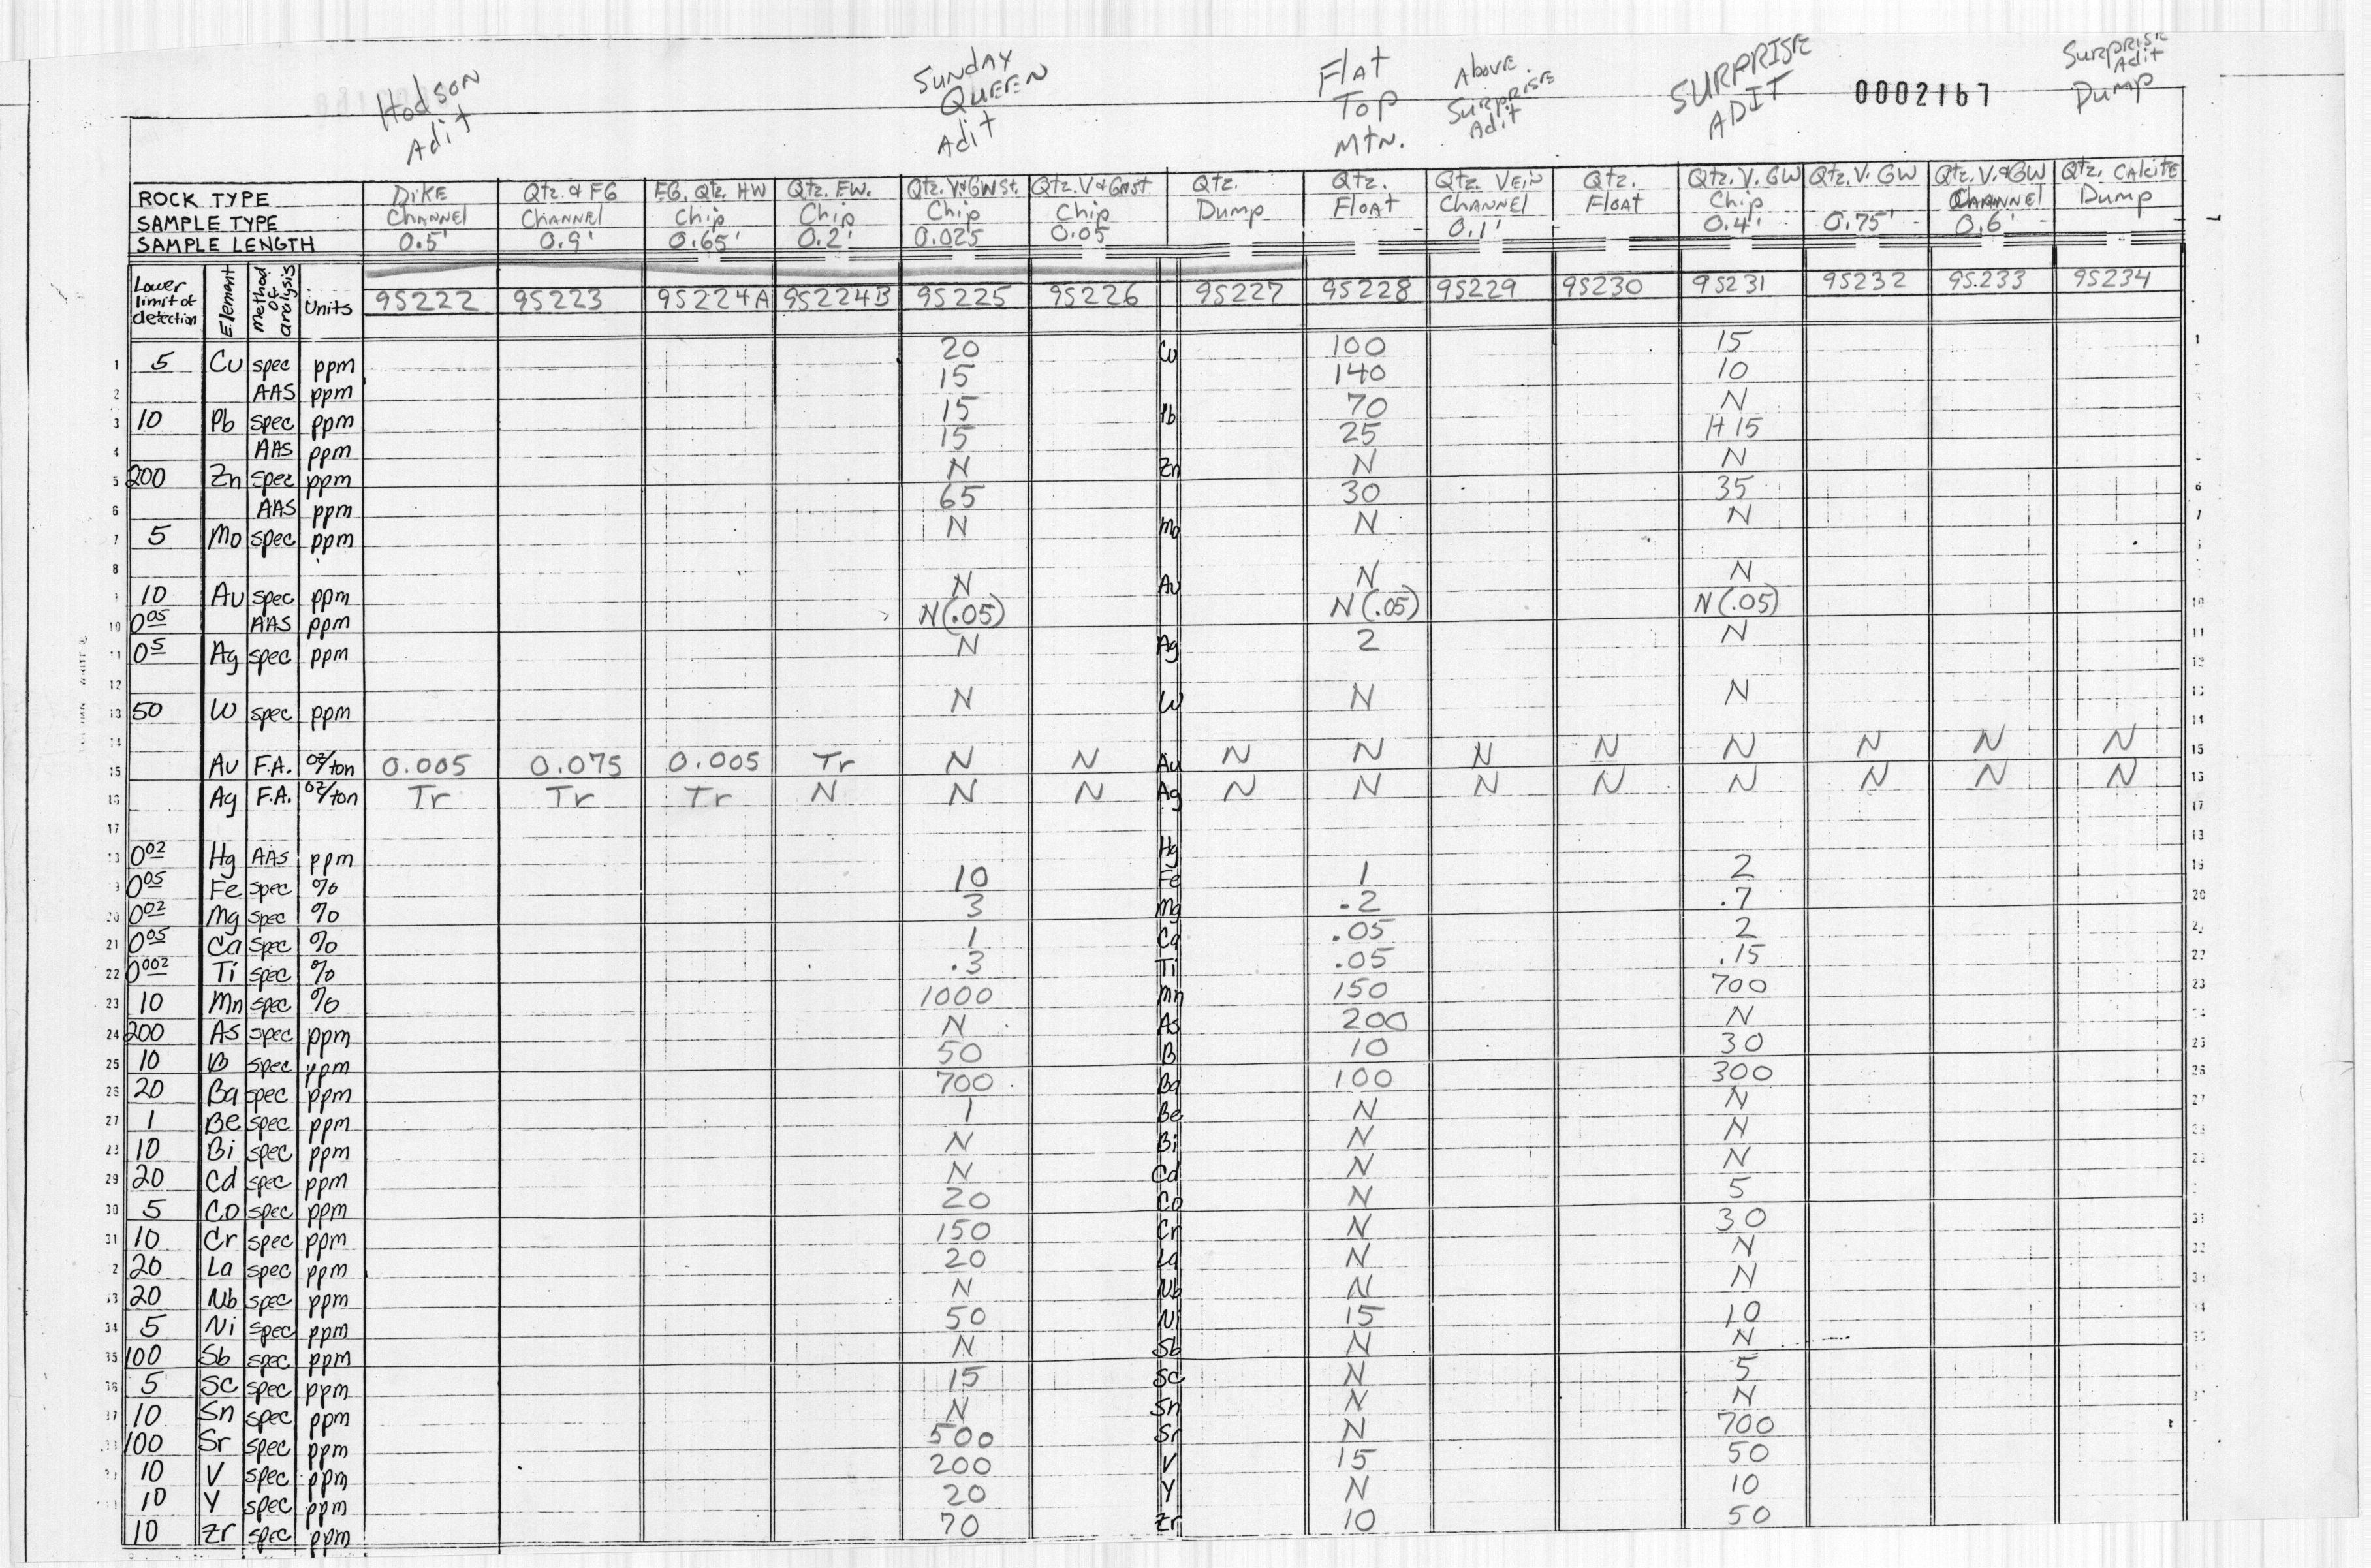 Hodson Adit SUNDAY QUEEN Adit Flat Top Mtn. Above Surprise Adit SURPRISE ADIT 0002167 Surprise Adit Dump
ROCK TYPE DIKE Qtz. & FG FG. Qtz. HW Qtz. FW. Qtz. V&GWSt. Qtz. V&Gnst. Qtz. Qtz. Qtz. Vein Qtz. Qtz. V. GW Qtz. V. GW Qtz. V.&GW Qtz. Calcite
SAMPLE TYPE Channel Channel Chip Chip Chip Chip Dump Float Channel Float Chip Channel Dump
SAMPLE LENGTH 0.5' 0.9' 0.65' 0.2' 0.025 0.05 0.1' 0.4' 0.75' 0.6'
Lower limit of detection Element Method of analysis Units 9S222 9S223 9S224A 9S224B 9S225 9S226 9S227 9S228 9S229 9S230 9S231 9S232 9S.233 9S234
1 5 Cu spec ppm 20 Cu 100 15 1
2 AAS ppm 15 140 10
3 10 Pb spec ppm 15 Pb 70 N
4 AAS ppm 15 25 H 15
5 200 Zn spec ppm N Zn N N
6 AAS ppm 65 30 35 6
7 5 Mo spec ppm N Mo N N 7
8
10 Au spec ppm N Au N N
10 0.05 AAS ppm N(.05) N(.05) N(.05) 10
11 0.5 Ag spec ppm N Ag 2 N 11
12 12
13 50 W spec ppm N W N N 13
14 14
15 Au F.A. oz/ton 0.005 0.075 0.005 Tr N N Au N N N N N N N N 15
16 Ag F.A. oz/ton Tr Tr Tr N N N Ag N N N N N N N N 16
17 17
18 0.02 Hg AAS ppm Hg 18
0.05 Fe spec % 10 Fe 1 2 19
20 0.02 Mg spec % 3 Mg .2 .7 20
21 0.05 Ca spec % 1 Ca .05 2
22 0.002 Ti spec % .3 Ti .05 .15 22
23 10 Mn spec % 1000 Mn 150 700 23
24 200 As spec ppm N As 200 N
25 10 B spec ppm 50 B 10 30 25
26 20 Ba spec ppm 700 Ba 100 300 26
27 1 Be spec ppm 1 Be N N 27
28 10 Bi spec ppm N Bi N N
29 20 Cd spec ppm N Cd N N
30 5 Co spec ppm 20 Co N 5
31 10 Cr spec ppm 150 Cr N 30 31
20 La spec ppm 20 La N N
20 Nb spec ppm N Nb N N
34 5 Ni spec ppm 50 Ni 15 10
35 100 Sb spec ppm N Sb N N
36 5 Sc spec ppm 15 Sc N 5
37 10 Sn spec ppm N Sn N N
100 Sr spec ppm 500 Sr N 700
10 V spec ppm 200 V 15 50
10 Y spec ppm 20 Y N 10
10 Zr spec ppm 70 Zr 10 50